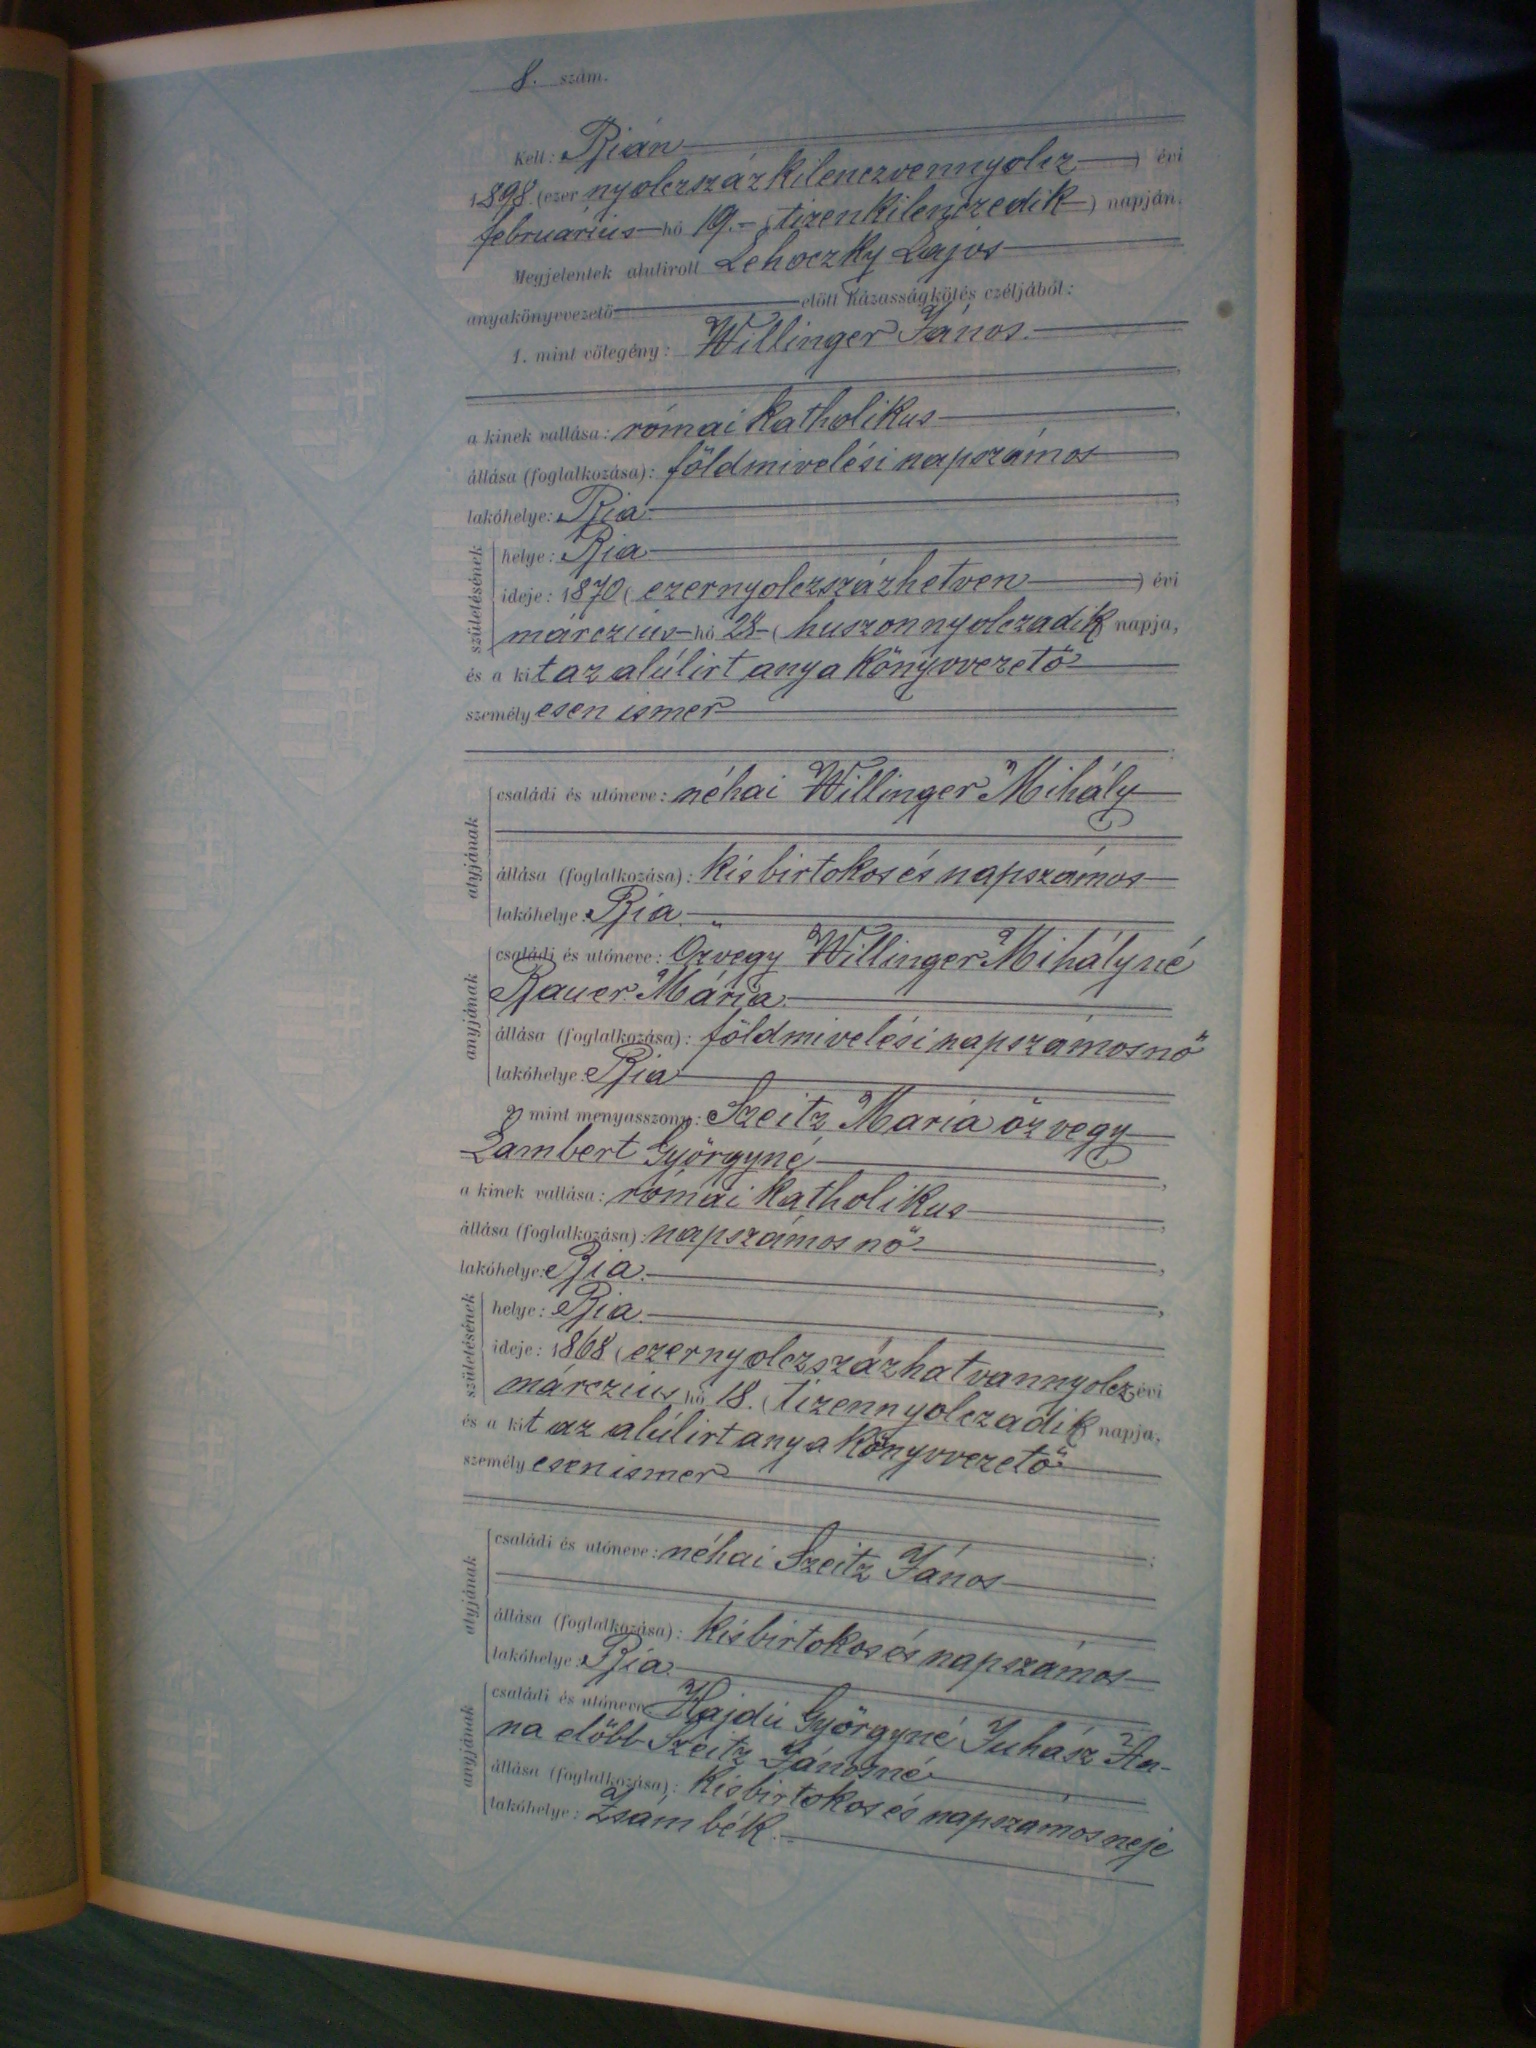 8. szám.
Kelt: Bián
1898. (ezer nyolczszázkilenczvennyolcz) évi
februárius hó 19. (tizenkilenczedik) napján.
Megjelentek alulirott Lehoczky Lajos
anyakönyvvezető előtt házasságkötés czéljából:
1. mint vőlegény: Willinger János.
a kinek vallása: római katholikus,
állása (foglalkozása): földmivelési napszámos,
lakóhelye: Bia.,
születésének
helye: Bia
ideje: 1870 (ezernyolczszázhetven) évi
márczius hó 28 (huszonnyolczadik napja,
és a kit az alúlirt anyakönyvvezető
személyesen ismer
;
atyjának
családi és utóneve: néhai Willinger Mihály
állása (foglalkozása): kisbirtokos és napszámos
lakóhelye: Bia.
anyjának
családi és utóneve: Özvegy Willinger Mihályné
Bauer Mária.
állása (foglalkozása): földmivelési napszámosnő
lakóhelye: Bia
2. mint menyasszony: Szeitz Maria özvegy
Lambert Györgyné,
a kinek vallása: római katholikus,
állása (foglalkozása): napszámos nő,
lakóhelye: Bia.,
születésének
helye: Bia.
ideje: 1868 (ezernyolczszázhatvannyolcz évi
márczius hó 18. (tizennyolczadik napja,
és a kit az alúlirt anyakönyvvezető
személyesen ismer
;
atyjának
családi és utóneve: néhai Szeitz János
állása (foglalkozása): kisbirtokos és napszámos
lakóhelye: Bia.
anyjának
családi és utóneve Hajdu Györgyné Juhász An-
na előbb Szeitz Jánosné
állása (foglalkozása): kisbirtokos és napszámos neje
lakóhelye: Zsámbék.